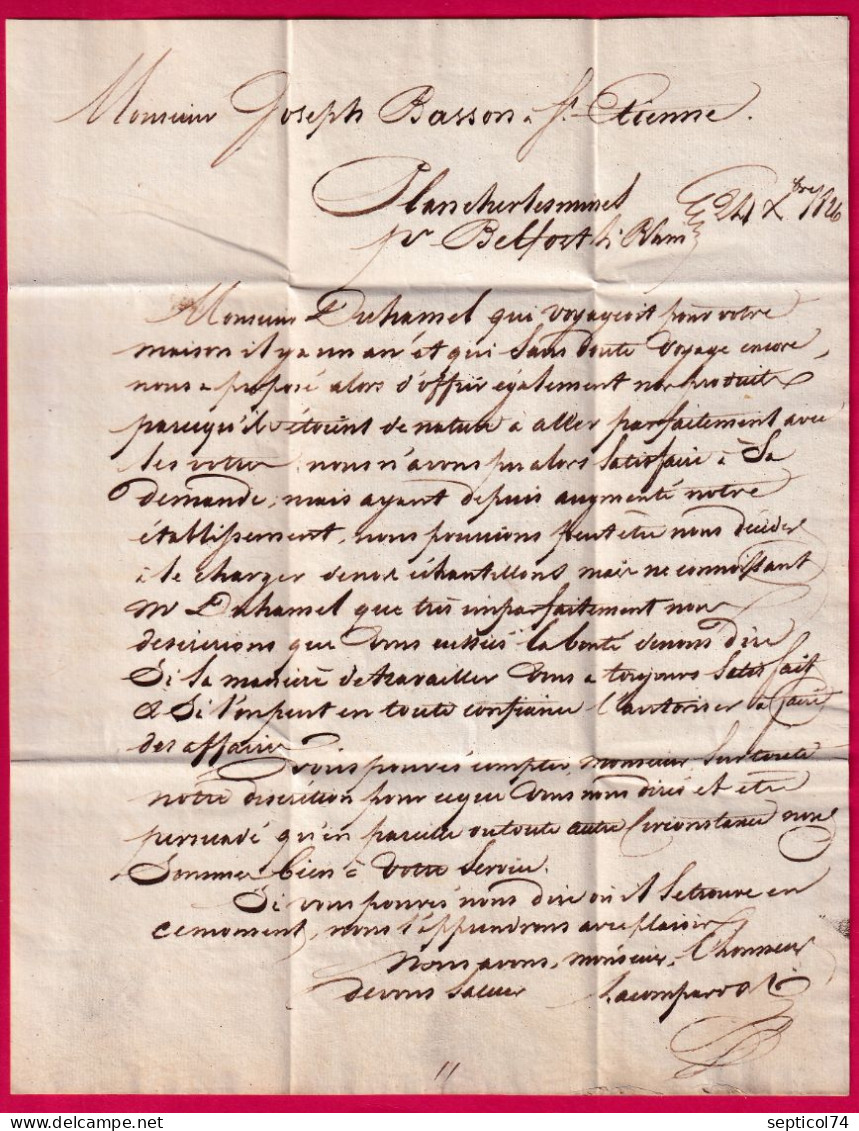 Monsieur Joseph Basson à St. Etienne.
Plancherlesmines 24 Xbre 1826
pr Belfort ht Rhin
Monsieur Duhamel qui voyageoit pour votre
maison il y a un an et qui sans doute voyage encore,
nous a proposé alors d'offrir également nos produits
parcequ'ils étoient de nature à aller parfaitement avec
les votres; nous n'avons pu alors satisfaire à sa
demande, mais ayant depuis augmenté notre
établissement, nous pourrions peut être nous décider
à le charger de nos échantillons mais ne connoissant
Mr Duhamel que très imparfaitement nous
desirerions que vous eussiés la bonté de nous dire
si sa manière de travailler vous a toujours satisfait
& si l'on peut en toute confiance l'autoriser à faire
des affaires
Vous pouvés compter, monsieur, sur toute
notre discrétion pour ce que vous nous dirés et être
persuadé qu'en pareille ou toute autre circonstance nous
sommes bien à votre service.
Si vous pouvés nous dire où il se trouve en
ce moment, nous l'apprendrons avec plaisir
Nous avons, monsieur, l'honneur
de vous saluer
septicol74